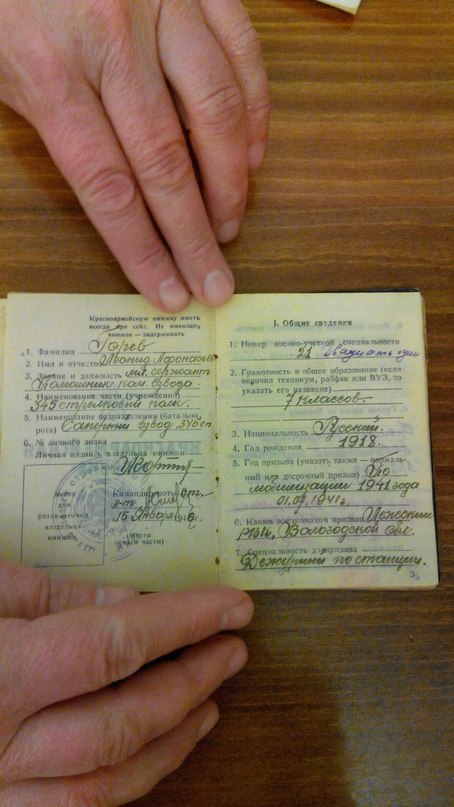 Красноармейскую книжку иметь
всегда при себе. Не имеющих
книжек — задерживать
1. Фамилия
2. Имя и отчество Леонид
3. Звание и должность мл. сержант
взвода.
4. Наименование части (учреждения)
345 стрелковый полк.
5. Наименование подразделения (батальон,
рота) Саперный взвод
6. № личного знака
Личная подпись владельца книжки
Место
для
фотокарточки
владельца
книжки
Командир части ст.
15 Января
(Место
печати части)
I. Общие сведения
1. Номер военно-учетной специальности
21 двадцать один
2. Грамотность и общее образование (если
окончил техникум, рабфак или ВУЗ, то
указать его название)
7 классов.
3. Национальность Русский.
4. Год рождения 1918.
5. Год призыва (указать также — нормаль-
ный или досрочный призыв) По
мобилизации 1941 года
6. Каким военкоматом призван
РВК, Вологодской обл.
7. Специальность до призыва
Дежурный по станции.
3